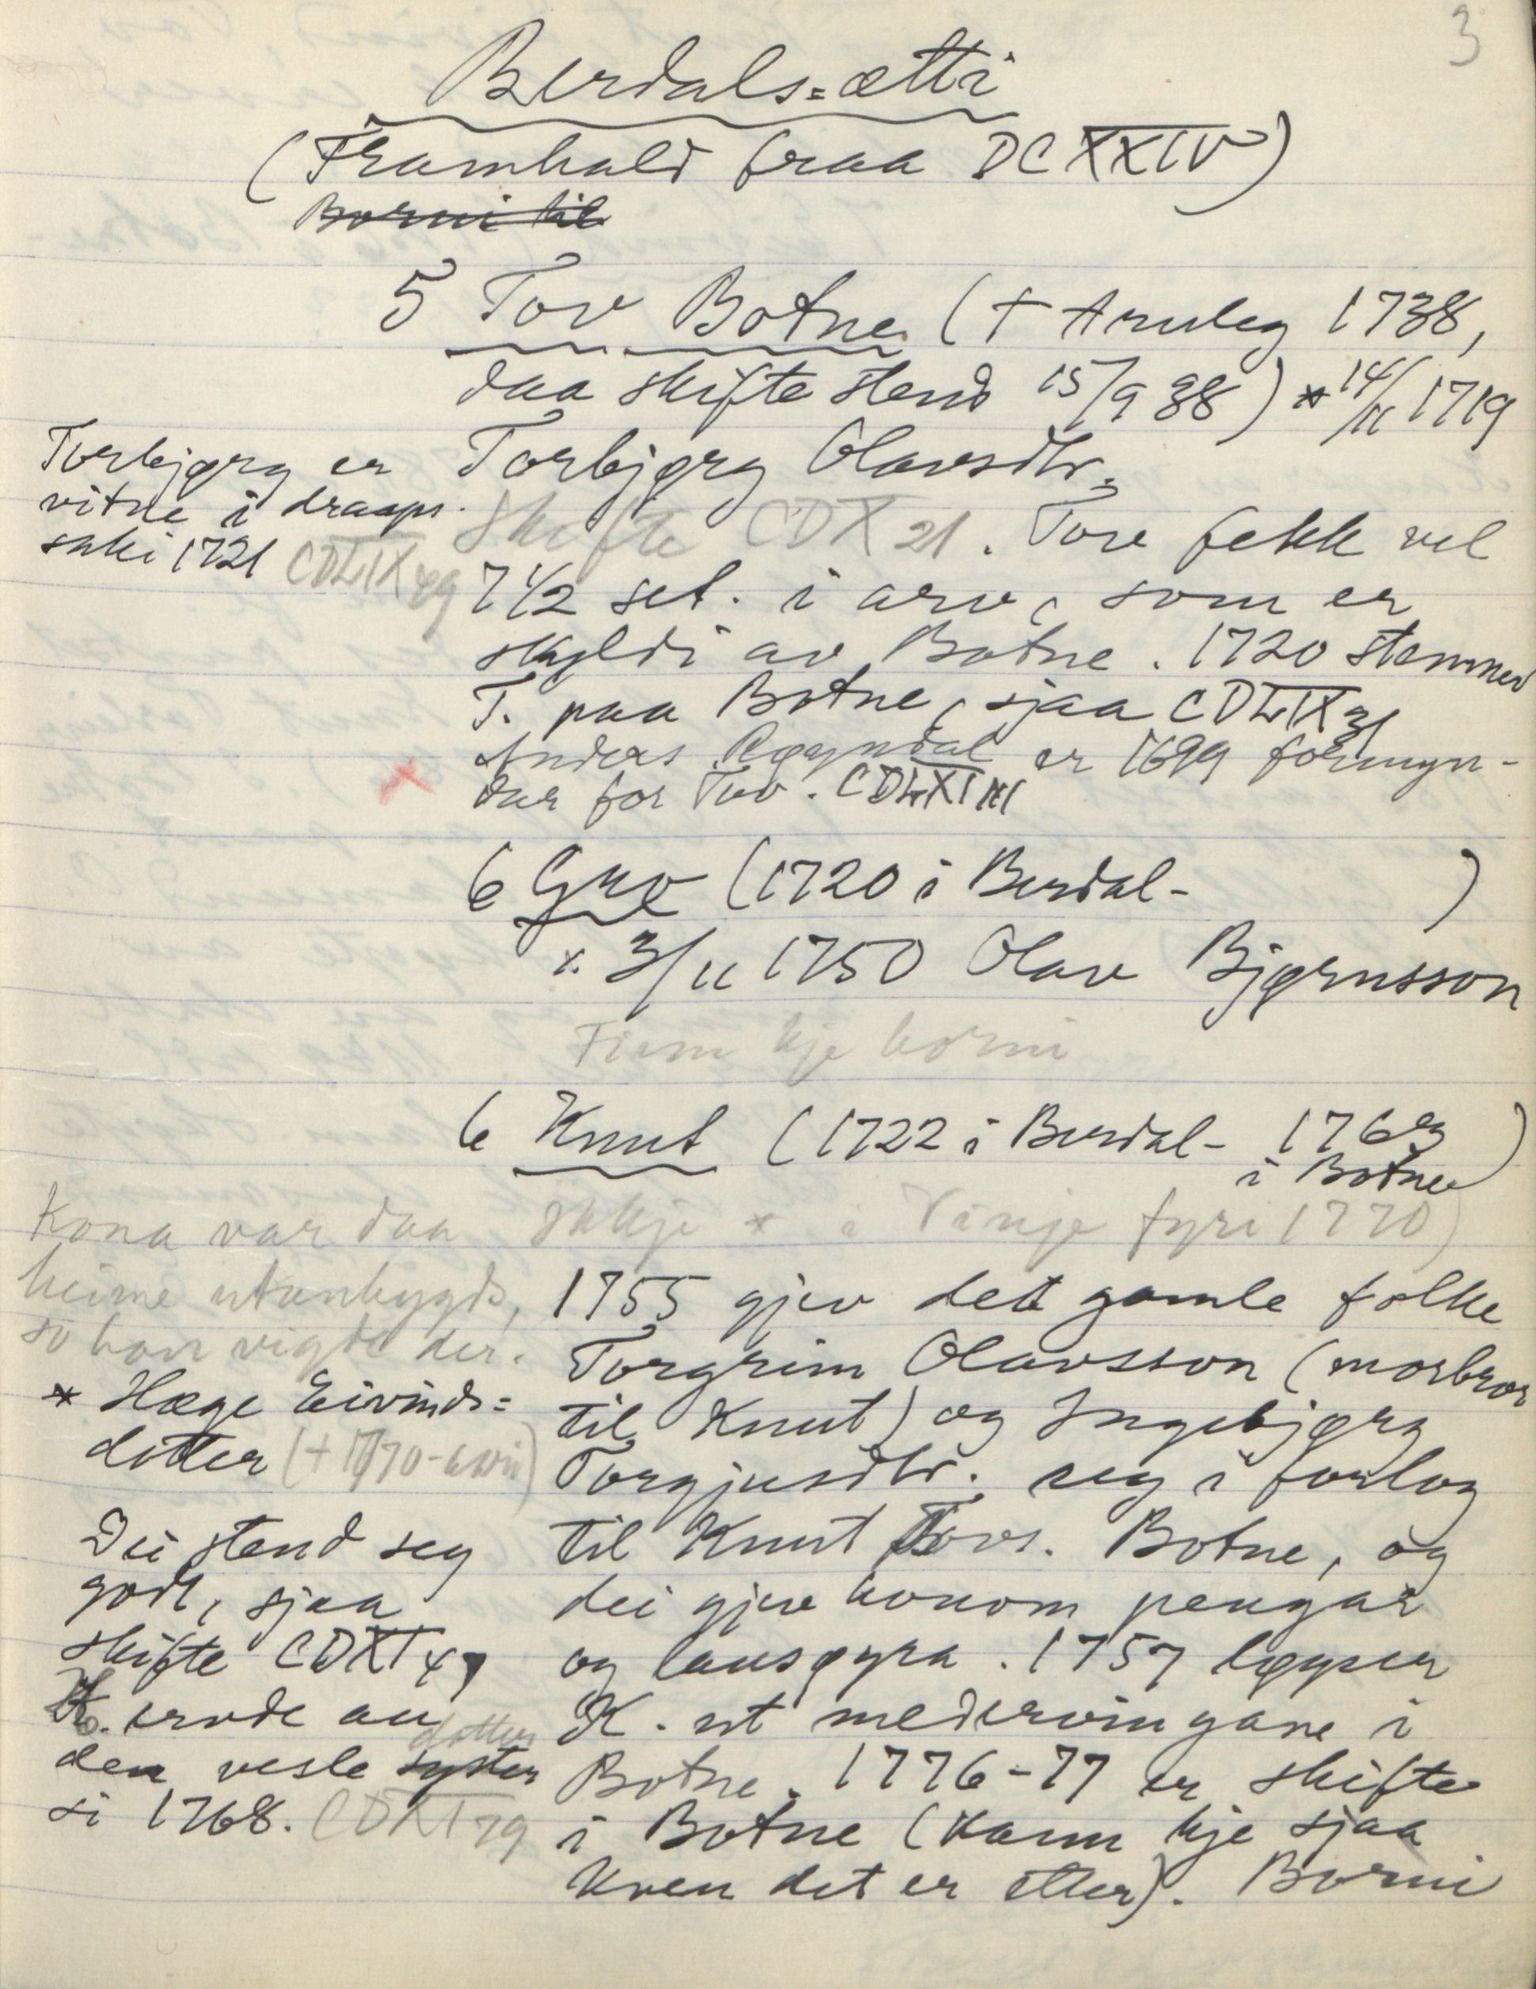 3
Berdals=ætti
(Framhald fraa DCXXIV)
Borni til
5 Tov Botne († truleg 1738,
daa skifte stend 15/9 38) * 14/11 1719
Torbjørg Olavsdtr.
Skifte CDX 21. Tore fekk vel
7 1/2 set. i arv, som er
skyldi av Botne. 1720 stemner
T. paa Botne, sjaa CDLIX 31
Anders Røyndal er 1699 formyn-
dar for Tov. CDLXI
Torbjørg er
vitne i draaps-
saki 1721 CDLIX 49
6 Gro (1720 i Berdal-            )
x. 3/11 1750 Olav Bjørnsson
Finn kje borni
6 Knut (1722 i Berdal- 
i Botne)
* i Vinje fyri 1770)
Kona var daa
heime utanbygds,
so han vigde der.
* Hæge Eivinds=
dotter (+ 1770-
Dei stend seg
godt, sjaa
skifte CDXI 47
K. ervde au
dotter
den vesle syster
si 1768. CDXI 79
1755 gjev det gamle folke
Torgrim Olavsson (morbror
til Knut) og Ingebjørg
Torgjusdtr. seg i forlog
til Knut Tovs. Botne, og
dei gjev honom pengar
og lausøyra. 1757 løyser
K. ut medervingane i
Botne. 1776-77 er skifte
i Botne (kann kje sjaa
kven det er etter). Borni